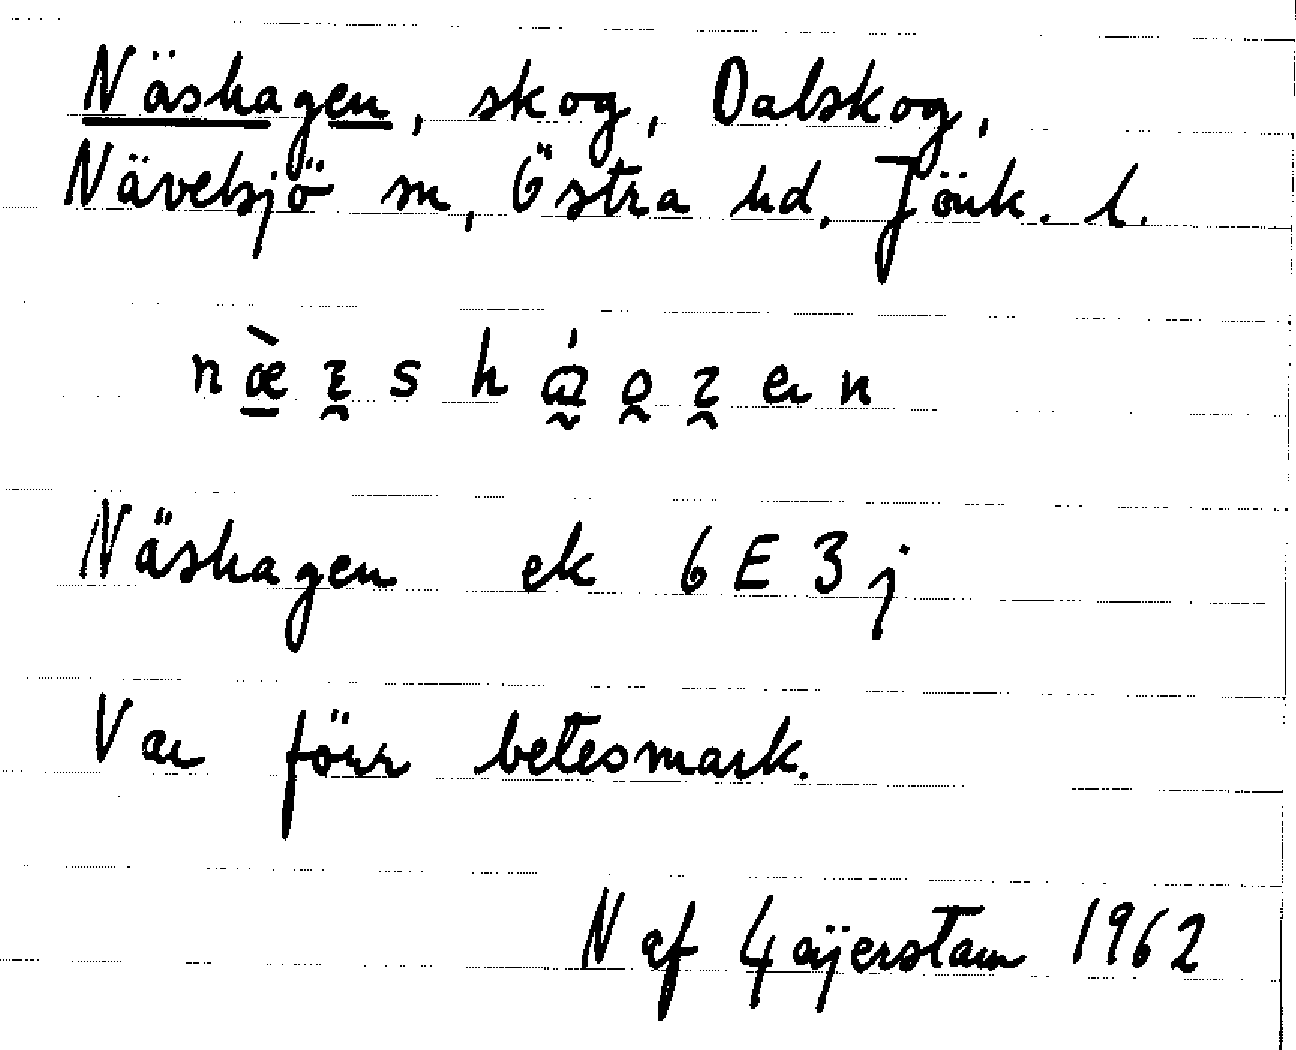 Näshagen, skog, Dalskog,
Nävelsjö sn, Östra hd, Jönk. l.
Näshagen ek 6 E 3 j
Var förr betesmark.
N af Gaijerstam 1962